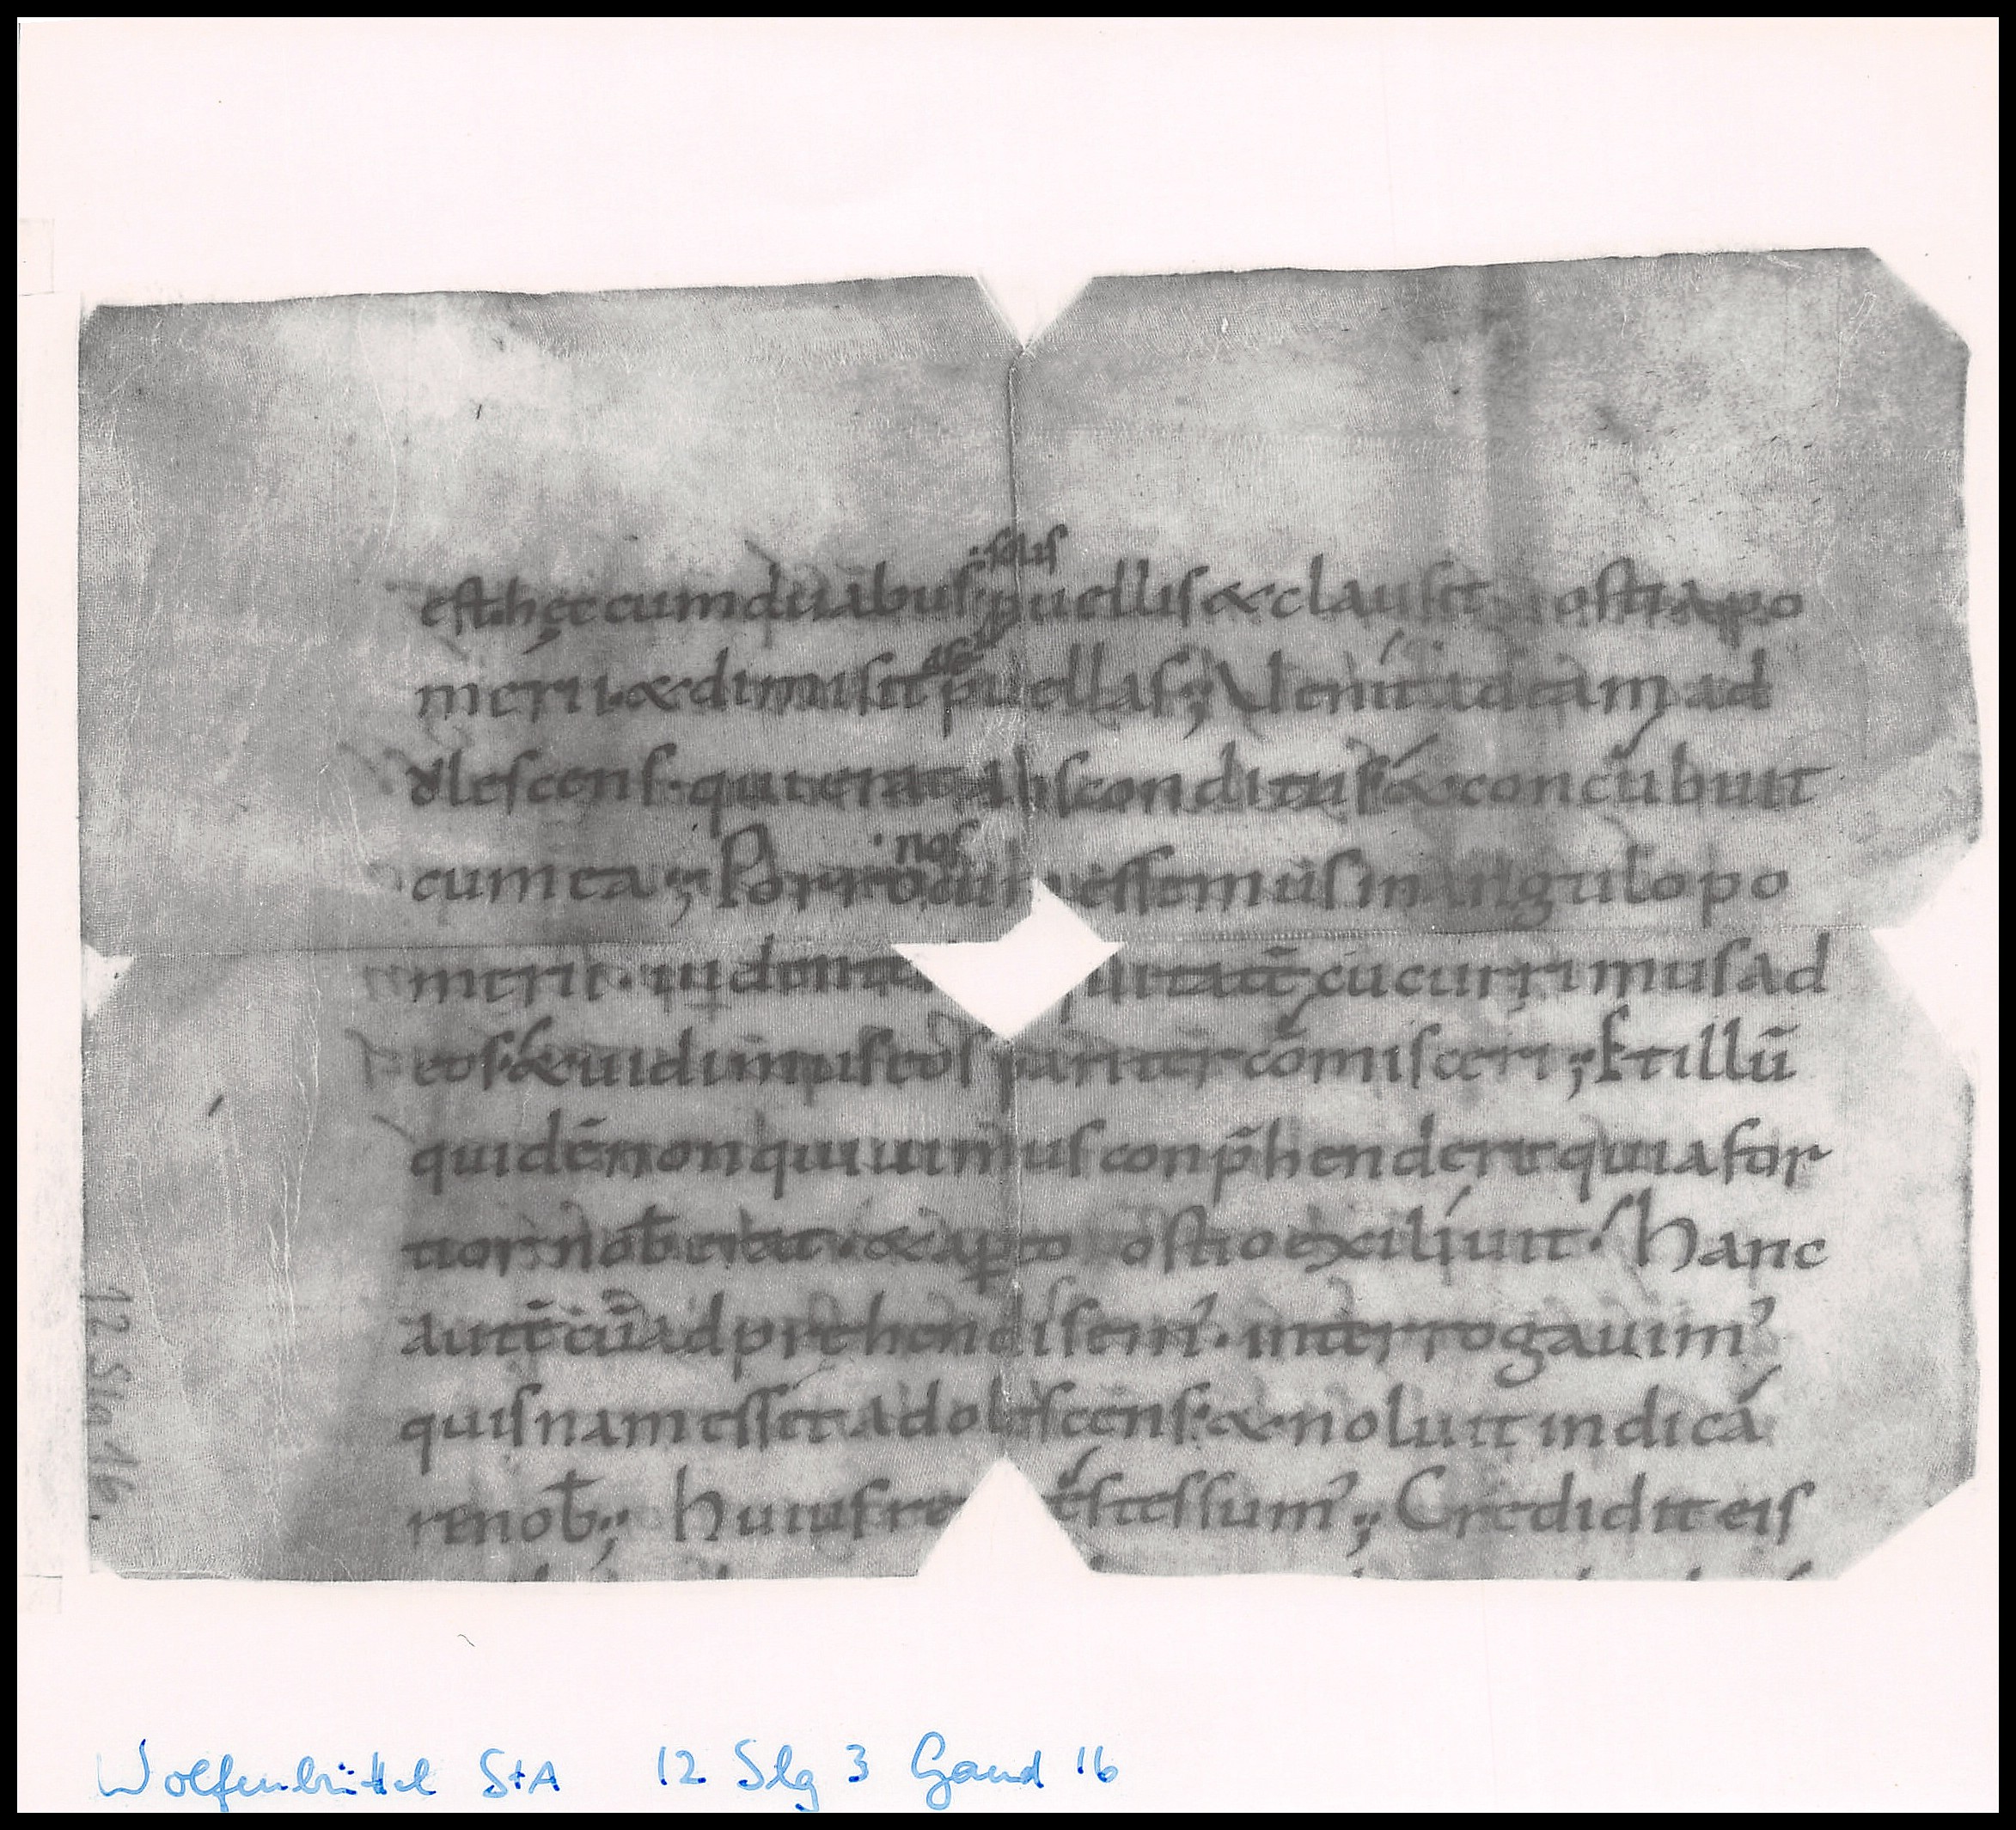 solis
est hęc cum duabus puellis & clausit ostia po
a se
merii· & dimisit puellas;; Venit ad eam ad
olescens· qui erat absconditus· & concubuit
nos
cum ea;; Porro cum essemus in angulo po
merii· uidentes iniquitatē cucurrimus ad
eos· & uidimus eos pariter cōmisceri;; Et illū
quidē non quiuimus conp̄hendere quia for
tior nob̄ erat· & aꝑto ostio exiliuit· Hanc
autē cū adprehendisem᾿· interrogauim᾿
quisnam esset adolescens· & noluit indica
re nob̄;; Huius rei testes sum᾿;; Credidit eis
12 Slg 16
Wolfenbüttel StA 12 Slg 3 Gand 16